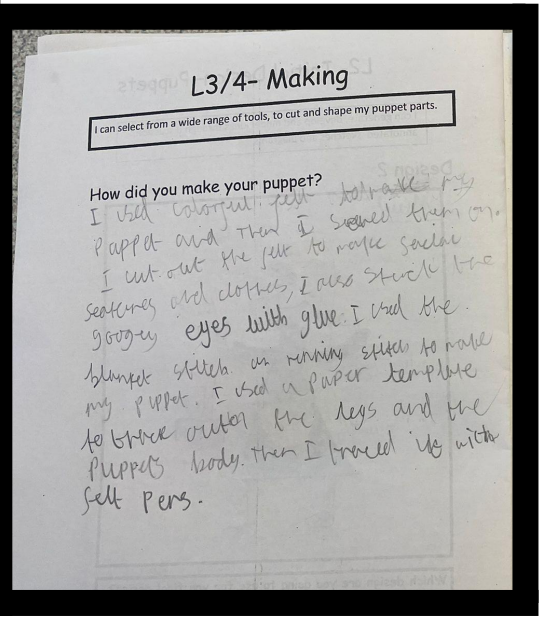 L3/4- Making
I can select from a wide range of tools, to cut and shape my puppet parts.
How did you make your puppet?
I used colorful felt to make my
pappet and then I sewed them on.
I cut out the felt to make
seatures and clothes, I also stuck the
googey eyes with glue. I used the
blanket stitch. an running stitch to make
my puppet. I used a paper template
to out the legs and the
Puppets body. then I traced it with
felt pens.